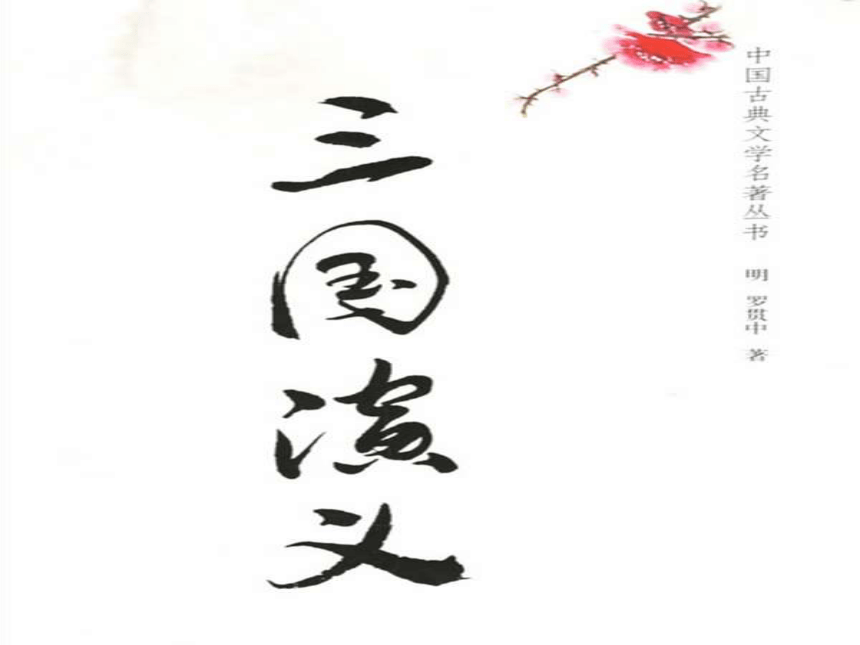 中国古典文学名著丛书 明 罗贯中 著
三国演义